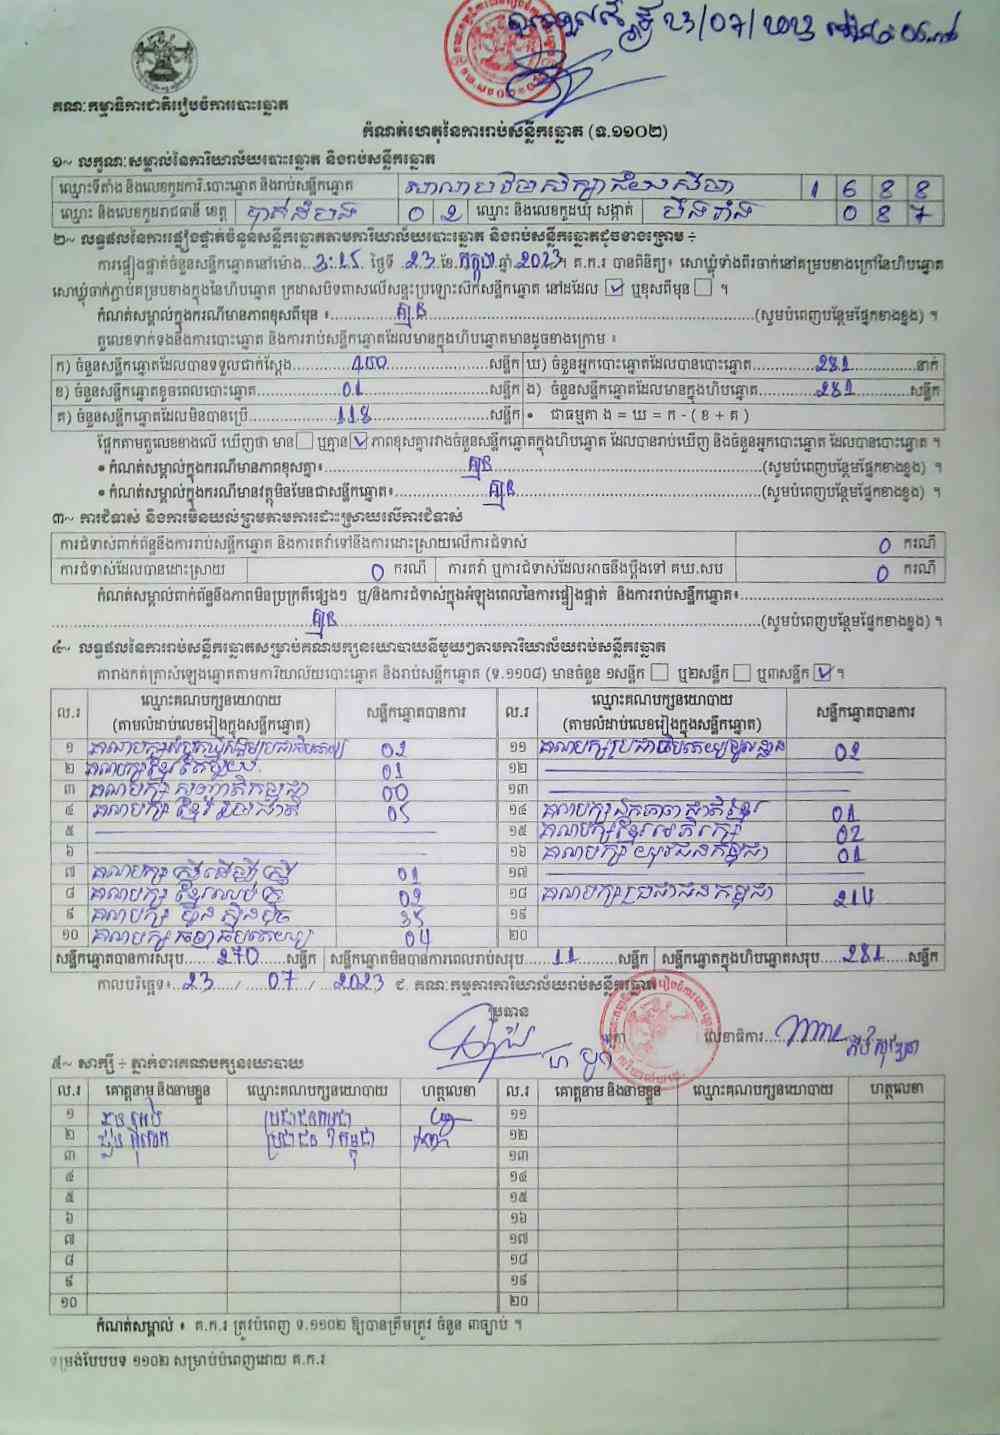 23/07/2023
គណៈកម្មាធិការជាតិរៀបចំការបោះឆ្នោត
កំណត់ហេតុនៃការរាប់សន្លឹកឆ្នោត (ទ.១១០២)
១~ លក្ខណៈសម្គាល់នៃការិយាល័យបោះឆ្នោត និងរាប់សន្លឹកឆ្នោត
ឈ្មោះទីតាំង និងលេខកូដការិ.បោះឆ្នោត និងរាប់សន្លឹកឆ្នោត 1 6 8 8
ឈ្មោះ និងលេខកូដរាជធានី ខេត្ត បាត់ដំបង 0 2 ឈ្មោះ និងលេខកូដឃុំ សង្កាត់ 0 8 7
២~ លទ្ធផលនៃការផ្ទៀងផ្ទាត់ចំនួនសន្លឹកឆ្នោតតាមការិយាល័យបោះឆ្នោត និងរាប់សន្លឹកឆ្នោតដូចខាងក្រោម ÷
ការផ្ទៀងផ្ទាត់ចំនួនសន្លឹកឆ្នោតនៅម៉ោង 3:25 ថ្ងៃទី 23 ខែ កក្កដា ឆ្នាំ 2023។ គ.ក.រ បានពិនិត្យ៖ សោឃ្លុំទាំងពីរចាក់នៅគម្របខាងក្រៅនៃហិបឆ្នោត
សោឃ្លុំចាក់ភ្ជាប់គម្របខាងក្នុងនៃហិបឆ្នោត ក្រដាសបិទពាសលើសន្ទះប្រឡោះស៊កសន្លឹកឆ្នោត នៅដដែល ☑ ឬខុសពីមុន ☐ ។
កំណត់សម្គាល់ក្នុងករណីមានភាពខុសពីមុន ៖ គ្មាន (សូមបំពេញបន្ថែមផ្នែកខាងខ្នង) ។
តួលេខទាក់ទងនឹងការបោះឆ្នោត និងការរាប់សន្លឹកឆ្នោតដែលមានក្នុងហិបឆ្នោតមានដូចខាងក្រោម ៖
ក) ចំនួនសន្លឹកឆ្នោតដែលបានទទួលជាក់ស្តែង 400 សន្លឹក ឃ) ចំនួនអ្នកបោះឆ្នោតដែលបានបោះឆ្នោត 281 នាក់
ខ) ចំនួនសន្លឹកឆ្នោតខូចពេលបោះឆ្នោត 01 សន្លឹក ង) ចំនួនសន្លឹកឆ្នោតដែលមានក្នុងហិបឆ្នោត 281 សន្លឹក
គ) ចំនួនសន្លឹកឆ្នោតដែលមិនបានប្រើ 118 សន្លឹក • ជាធម្មតា ង = ឃ = ក - ( ខ + គ )
ផ្អែកតាមតួលេខខាងលើ ឃើញថា មាន ☐ ឬគ្មាន ☑ ភាពខុសគ្នារវាងចំនួនសន្លឹកឆ្នោតក្នុងហិបឆ្នោត ដែលបានរាប់ឃើញ និងចំនួនអ្នកបោះឆ្នោត ដែលបានបោះឆ្នោត ។
• កំណត់សម្គាល់ក្នុងករណីមានភាពខុសគ្នា៖ គ្មាន (សូមបំពេញបន្ថែមផ្នែកខាងខ្នង) ។
• កំណត់សម្គាល់ក្នុងករណីមានវត្ថុមិនមែនជាសន្លឹកឆ្នោត៖ គ្មាន (សូមបំពេញបន្ថែមផ្នែកខាងខ្នង) ។
៣~ ការជំទាស់ និងការមិនយល់ព្រមតាមការដោះស្រាយលើការជំទាស់
ការជំទាស់ពាក់ព័ន្ធនឹងការរាប់សន្លឹកឆ្នោត និងការតវ៉ាទៅនឹងការដោះស្រាយលើការជំទាស់ 0 ករណី
ការជំទាស់ដែលបានដោះស្រាយ 0 ករណី ការតវ៉ា ឬការជំទាស់ដែលអាចនឹងប្តឹងទៅ គឃ.សប 0 ករណី
កំណត់សម្គាល់ពាក់ព័ន្ធនឹងភាពមិនប្រក្រតីផ្សេងៗ ឬ/និងការជំទាស់ក្នុងអំឡុងពេលនៃការផ្ទៀងផ្ទាត់ និងការរាប់សន្លឹកឆ្នោត៖
គ្មាន (សូមបំពេញបន្ថែមផ្នែកខាងខ្នង) ។
៤~ លទ្ធផលនៃការរាប់សន្លឹកឆ្នោតសម្រាប់គណបក្សនយោបាយនីមួយៗតាមការិយាល័យរាប់សន្លឹកឆ្នោត
តារាងកត់ត្រាសំឡេងឆ្នោតតាមការិយាល័យបោះឆ្នោត និងរាប់សន្លឹកឆ្នោត (ទ.១១០៨) មានចំនួន ១សន្លឹក ☐ ឬ២សន្លឹក ☐ ឬ៣សន្លឹក ☑ ។
ល.រ ឈ្មោះគណបក្សនយោបាយ (តាមលំដាប់លេខរៀងក្នុងសន្លឹកឆ្នោត) សន្លឹកឆ្នោតបានការ ល.រ ឈ្មោះគណបក្សនយោបាយ (តាមលំដាប់លេខរៀងក្នុងសន្លឹកឆ្នោត) សន្លឹកឆ្នោតបានការ
១ 02 ១១ គណបក្សប្រជាធិបតេយ្យមូលដ្ឋាន 02
២ គណបក្សខ្មែរតែមួយ 01 ១២
៣ គណបក្ស សញ្ជាតិកម្ពុជា 00 ១៣
៤ គណបក្ស ខ្មែររួបរួមជាតិ 05 ១៤ គណបក្សឯកភាពជាតិខ្មែរ 01
៥ ១៥ គណបក្សខ្មែរអភិរក្ស 02
៦ ១៦ គណបក្ស យុវជនកម្ពុជា 01
៧ គណបក្ស ស្ត្រីដើម្បីស្ត្រី 01 ១៧
៨ គណបក្ស ខ្មែរឈប់ក្រ 02 ១៨ គណបក្សប្រជាជនកម្ពុជា 214
៩ គណបក្ស ហ្វ៊ុនស៊ិនប៉ិច 35 ១៩
១០ គណបក្ស ធម្មាធិបតេយ្យ 04 ២០
សន្លឹកឆ្នោតបានការសរុប 270 សន្លឹក សន្លឹកឆ្នោតមិនបានការពេលរាប់សរុប 11 សន្លឹក សន្លឹកឆ្នោតក្នុងហិបឆ្នោតសរុប 281 សន្លឹក
កាលបរិច្ឆេទ៖ 23 / 07 / 2023 ៩. គណៈកម្មការការិយាល័យរាប់សន្លឹកឆ្នោត
ប្រធាន
លេខាធិការ
៥~ សាក្សី ÷ ភ្នាក់ងារគណបក្សនយោបាយ
ល.រ គោត្តនាម និងនាមខ្លួន ឈ្មោះគណបក្សនយោបាយ ហត្ថលេខា ល.រ គោត្តនាម និងនាមខ្លួន ឈ្មោះគណបក្សនយោបាយ ហត្ថលេខា
១ ប្រជាជនកម្ពុជា ១១
២ ប្រជាជន កម្ពុជា ១២
៣ ១៣
៤ ១៤
៥ ១៥
៦ ១៦
៧ ១៧
៨ ១៨
៩ ១៩
១០ ២០
កំណត់សម្គាល់ ៖ គ.ក.រ ត្រូវបំពេញ ទ.១១០២ ឱ្យបានត្រឹមត្រូវ ចំនួន ៣ច្បាប់ ។
ទម្រង់បែបបទ ១១០២ សម្រាប់បំពេញដោយ គ.ក.រ